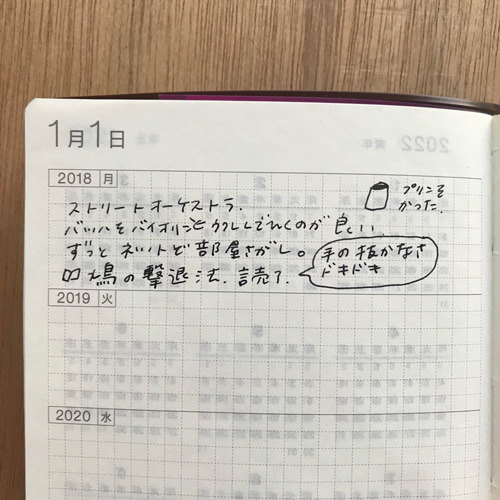 1月1日
2018 月
プリンを
かった.
ストリートオーケストラ.
バッハをバイオリンとウクレレでひくのが良い.
ずっとネットで部屋さがし。
鳩の撃退法. 読了.
手の抜かなさ
ドキドキ
2019 火
2020 水